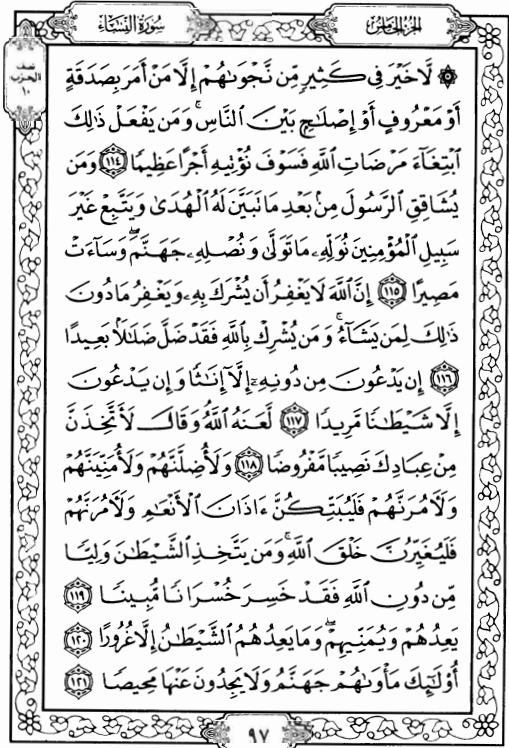 الجزء الخامس
سورة النساء
نصف
الحزب
١٠
۞ لَّا خَيْرَ فِى كَثِيرٍ مِّن نَّجْوَىٰهُمْ إِلَّا مَنْ أَمَرَ بِصَدَقَةٍ
أَوْ مَعْرُوفٍ أَوْ إِصْلَٰحٍۭ بَيْنَ النَّاسِ ۚ وَمَن يَفْعَلْ ذَٰلِكَ
ابْتِغَآءَ مَرْضَاتِ اللَّهِ فَسَوْفَ نُؤْتِيهِ أَجْرًا عَظِيمًا ١١٤ وَمَن
يُشَاقِقِ الرَّسُولَ مِنۢ بَعْدِ مَا تَبَيَّنَ لَهُ الْهُدَىٰ وَيَتَّبِعْ غَيْرَ
سَبِيلِ الْمُؤْمِنِينَ نُوَلِّهِۦ مَا تَوَلَّىٰ وَنُصْلِهِۦ جَهَنَّمَ ۖ وَسَآءَتْ
مَصِيرًا ١١٥ إِنَّ اللَّهَ لَا يَغْفِرُ أَن يُشْرَكَ بِهِۦ وَيَغْفِرُ مَا دُونَ
ذَٰلِكَ لِمَن يَشَآءُ ۚ وَمَن يُشْرِكْ بِاللَّهِ فَقَدْ ضَلَّ ضَلَٰلًۢا بَعِيدًا
١١٦ إِن يَدْعُونَ مِن دُونِهِۦٓ إِلَّآ إِنَٰثًا وَإِن يَدْعُونَ
إِلَّا شَيْطَٰنًا مَّرِيدًا ١١٧ لَّعَنَهُ اللَّهُ ۘ وَقَالَ لَأَتَّخِذَنَّ
مِنْ عِبَادِكَ نَصِيبًا مَّفْرُوضًا ١١٨ وَلَأُضِلَّنَّهُمْ وَلَأُمَنِّيَنَّهُمْ
وَلَءَامُرَنَّهُمْ فَلَيُبَتِّكُنَّ ءَاذَانَ الْأَنْعَٰمِ وَلَءَامُرَنَّهُمْ
فَلَيُغَيِّرُنَّ خَلْقَ اللَّهِ ۚ وَمَن يَتَّخِذِ الشَّيْطَٰنَ وَلِيًّا
مِّن دُونِ اللَّهِ فَقَدْ خَسِرَ خُسْرَانًا مُّبِينًا ١١٩
يَعِدُهُمْ وَيُمَنِّيهِمْ ۖ وَمَا يَعِدُهُمُ الشَّيْطَٰنُ إِلَّا غُرُورًا ١٢٠
أُو۟لَٰٓئِكَ مَأْوَىٰهُمْ جَهَنَّمُ وَلَا يَجِدُونَ عَنْهَا مَحِيصًا ١٢١
٩٧